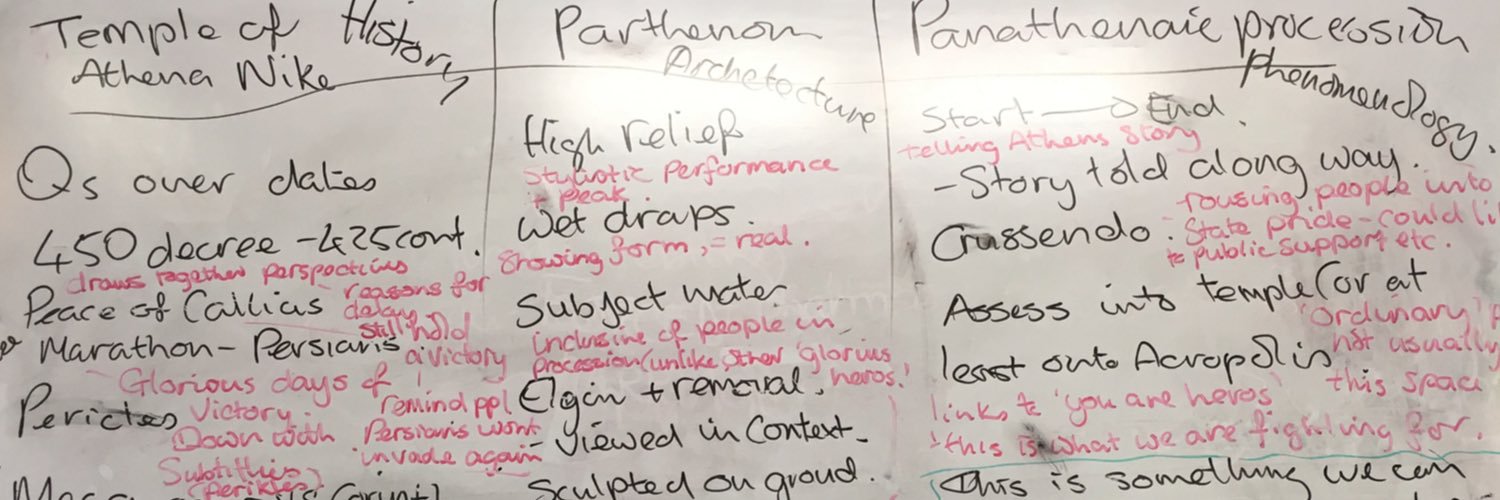 Temple of History
Athena Nike
Qs over dates
450 decree - 425 cont.
draws together perspectives
Peace of Callias - reasons for
delay
Marathon - Persians still hold
a victory
Glorious days of
Pericles victory.
remind ppl
Down with Persians wont
invade again
Parthenon
Archetecture
High relief
Stylistic Performance
+ peak.
Wet draps.
Showing form, = real.
Subject mater
inclusive of people in
procession (unlike other 'glorius
heros.'
Elgin + removal.
- Viewed in Context.
Sculpted on groud.
Panathenaic procession
Phenomenology.
Start → End.
telling Athens Story
- Story told along way.
rousing people into
Crussendo: State pride - could
to public support etc.
Assess into temple (or at
'ordinary'
least onto Acropolis
not usually
this space
links to 'you are heros'
'this is what we are fighting for.
This is something we can